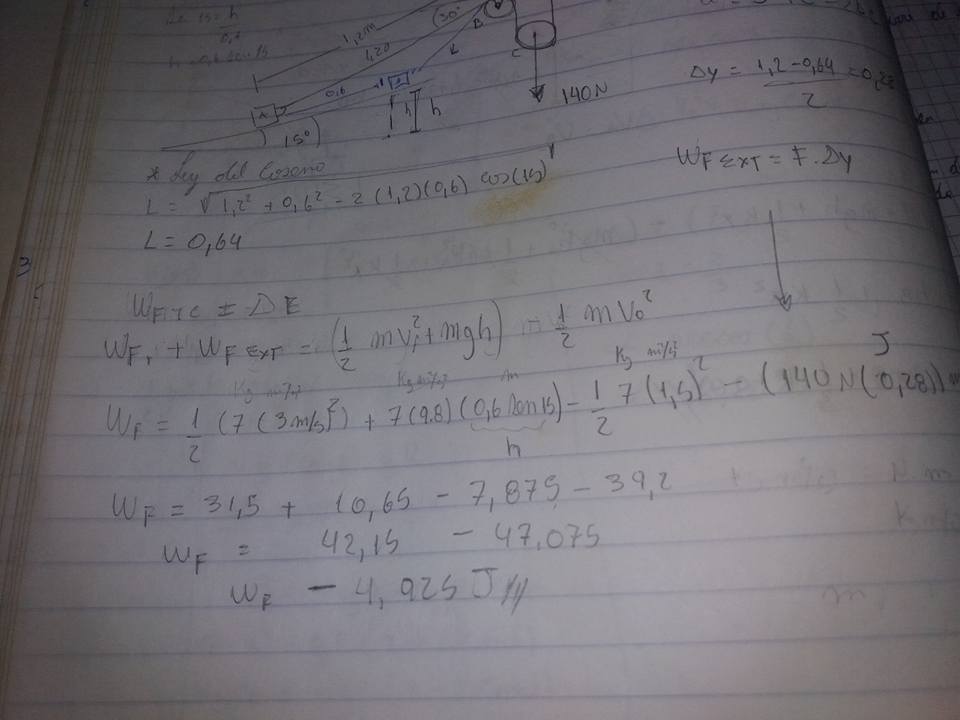 1,2m
30°
B
1,20
L
C
0,6
A
h
h
15°
140N
Δy = 1,2 - 0,64 / 2 = 0,28
* Ley del Coseno
WF EXT = F . Δy
L = √1,2² + 0,6² - 2 (1,2)(0,6) cos(15)
L = 0,64
3
WFrc = ΔE
WFr + WF EXT = (1/2 mVf² + mgh) - 1/2 mV₀²
Kg m²/s²
Kg m²/s²
m
Kg m²/s²
J
WF = 1/2 (7 (3m/s)²) + 7(9.8) (0,6 sen 15) - 1/2 7 (1,5)² - (140N (0,28))
h
WF = 31,5 + 10,65 - 7,875 - 39,2
WF = 42,15 - 47,075
WF - 4,925 J